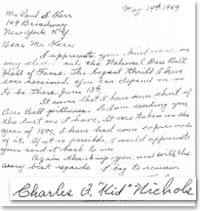 May 14th 1949
Mr Paul S. Kerr
109 Broadway
New York N.Y.
Dear Mr Kerr:
I appreciate you kind words on
my election to the National Base Ball
Hall of Fame. The biggest thrill I have
ever received. You can depend on me
to be there June 13th.
It seems that I have run short of
Base Ball pictures. I am sending you
the last one I have. It was taken in the
year of 1899. I have had some reprints made
of it. If at possible, I would appreciate
you send it back to me.
Again thanking you, and with the
very best regards. I beg to remain
Charles A. "Kid" Nichols